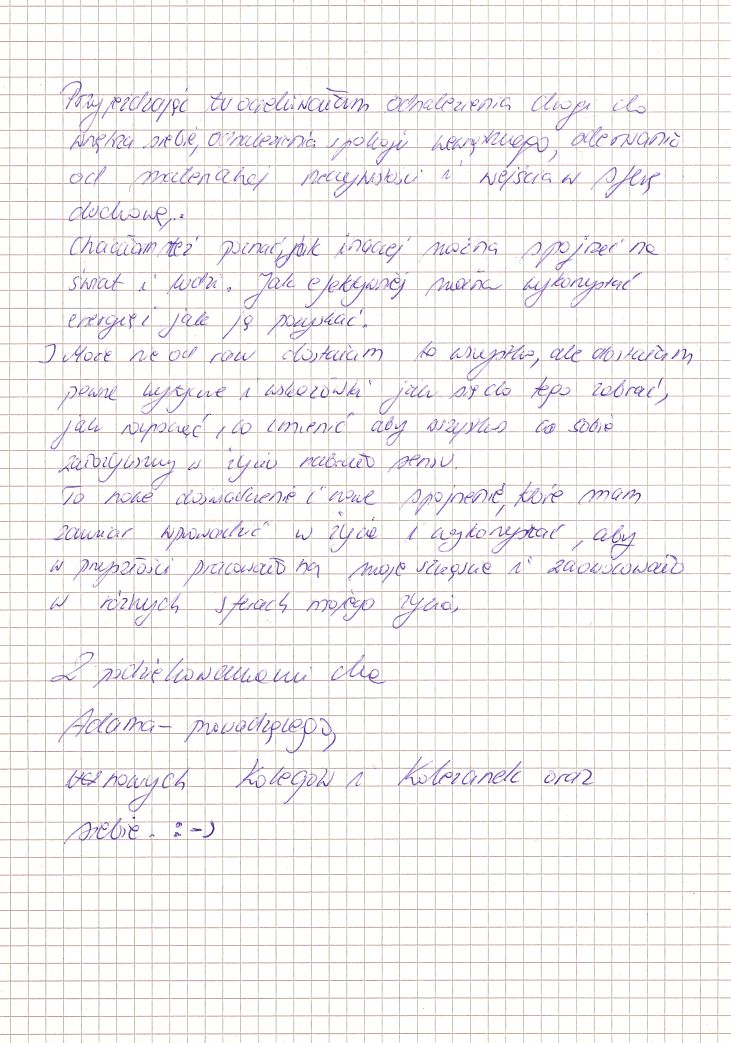 Przyjeżdżając tu oczekiwałam odnalezienia drogi do
wnętrza siebie, odnalezienia spokoju wewnętrznego, oderwania
od materialnej rzeczywistości i wejścia w sferę
duchową.
Chciałam też poznać, jak inaczej można spojrzeć na
świat i ludzi. Jak efektywniej można wykorzystać
energię i jak ją pozyskać.
I Może nie od razu dostałam to wszystko, ale dostałam
pewne wytyczne i wskazówki jak się do tego zabrać,
jak rozpocząć, co zmienić aby wszystko co sobie
założyliśmy w życiu nabrało sensu.
To nowe doświadczenie i nowe spojrzenie, które mam
zamiar wprowadzić w życie i wykorzystać, aby
w przyszłości pracowało na moje szczęście i zaowocowało
w różnych sferach mojego życia.
Z podziękowaniami dla
Adama – prowadzącego,
nowych Kolegów i Koleżanek oraz
siebie. :-)